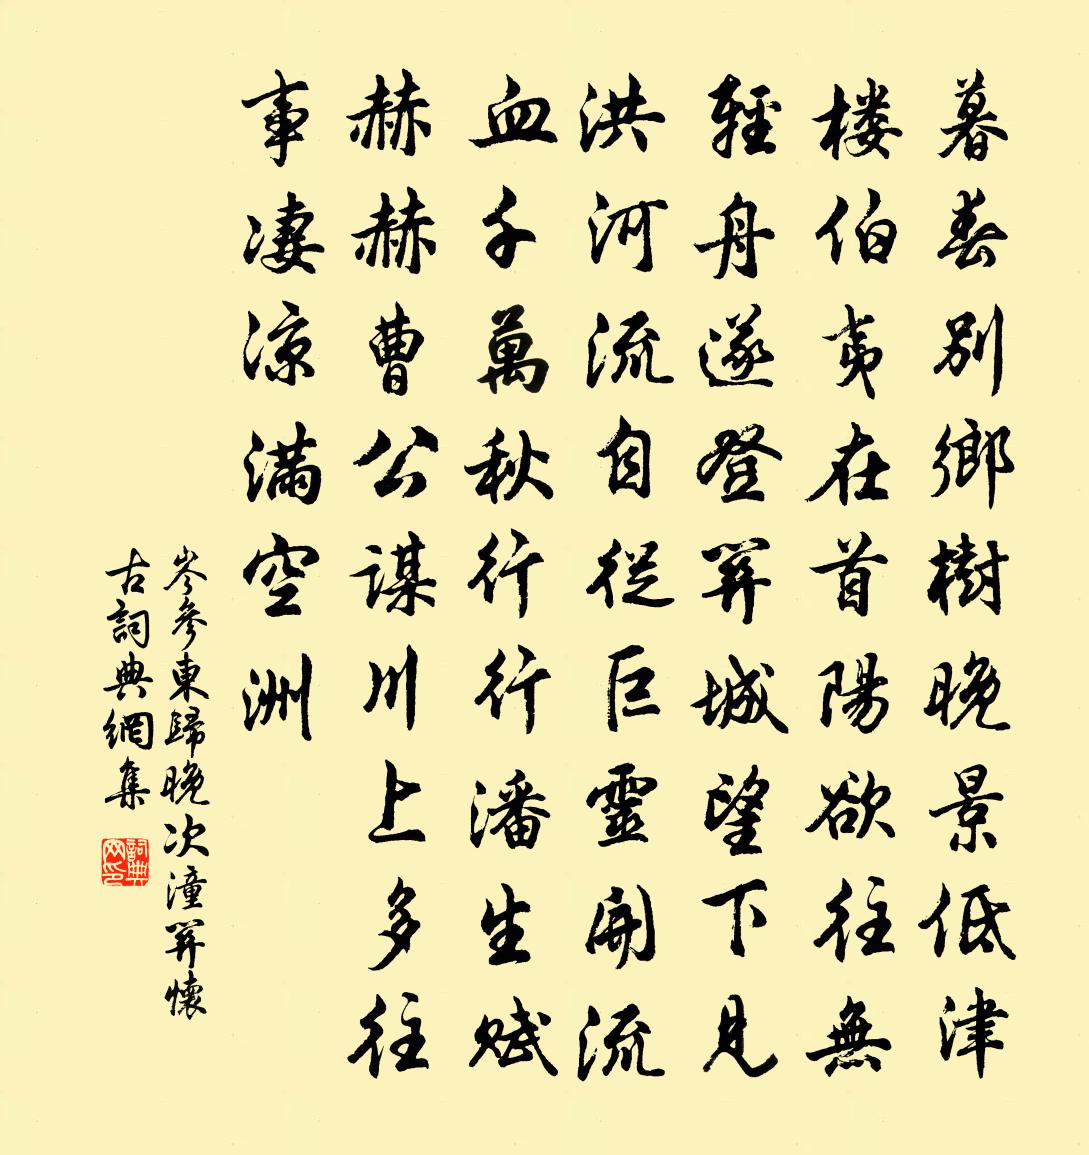 暮春別鄉樹晚景低津
楼伯夷在首陽欲往無
輕舟遂登関城望下見
洪河流自從巨靈開流
血千萬秋行行潘生赋
赫赫曹公謀川上多往
事凄涼满空洲
岑參東歸晚次潼関懷
古詞典網集
詞典网印